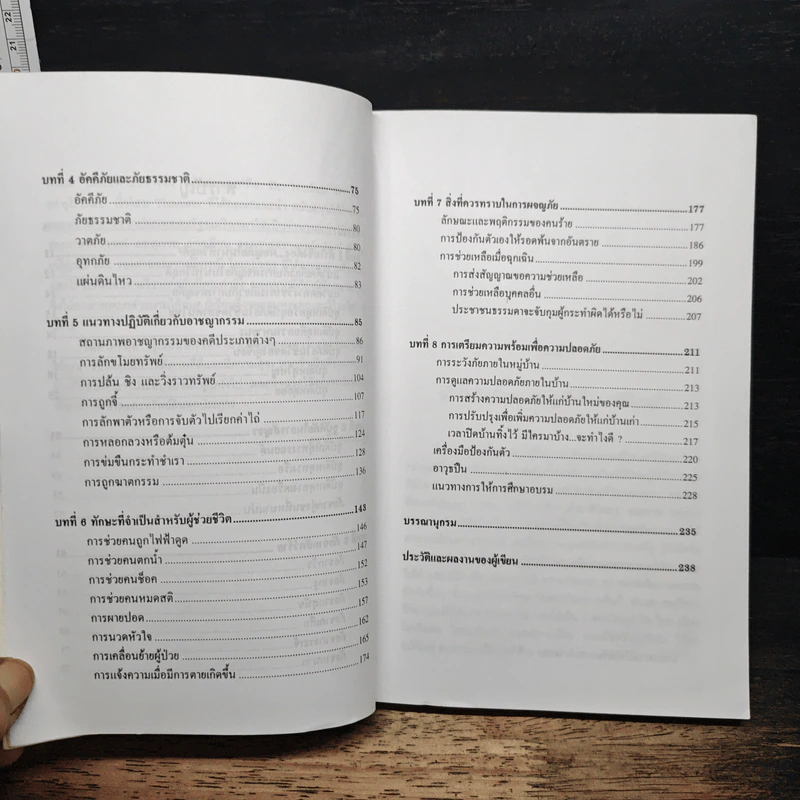 บทที่ 4 อัคคีภัยและภัยธรรมชาติ 75
อัคคีภัย 75
ภัยธรรมชาติ 80
วาตภัย 80
อุทกภัย 82
แผ่นดินไหว 83
บทที่ 5 แนวทางปฏิบัติเกี่ยวกับอาชญากรรม 85
สถานภาพอาชญากรรมของคดีประเภทต่างๆ 86
การลักขโมยทรัพย์ 91
การปล้น ชิง และวิ่งราวทรัพย์ 104
การถูกจี้ 107
การลักพาตัวหรือการจับตัวไปเรียกค่าไถ่ 117
การหลอกลวงหรือต้มตุ๋น 124
การข่มขืนกระทำชำเรา 128
การถูกฆาตกรรม 136
บทที่ 6 ทักษะที่จำเป็นสำหรับผู้ช่วยชีวิต 143
การช่วยคนถูกไฟฟ้าดูด 146
การช่วยคนตกน้ำ 147
การช่วยคนช็อค 152
การช่วยคนหมดสติ 153
การผายปอด 157
การนวดหัวใจ 162
การเคลื่อนย้ายผู้ป่วย 165
การแจ้งความเมื่อมีการตายเกิดขึ้น 174
บทที่ 7 สิ่งที่ควรทราบในการผจญภัย 177
ลักษณะและพฤติกรรมของคนร้าย 177
การป้องกันตัวเองให้รอดพ้นจากอันตราย 186
การช่วยเหลือเมื่อฉุกเฉิน 199
การส่งสัญญาณขอความช่วยเหลือ 202
การช่วยเหลือบุคคลอื่น 206
ประชาชนธรรมดาจะจับกุมผู้กระทำผิดได้หรือไม่ 207
บทที่ 8 การเตรียมความพร้อมเพื่อความปลอดภัย 211
การระวังภัยภายในหมู่บ้าน 211
การดูแลความปลอดภัยภายในบ้าน 213
การสร้างความปลอดภัยให้แก่บ้านใหม่ของคุณ 213
การปรับปรุงเพื่อเพิ่มความปลอดภัยให้แก่บ้านเก่า 215
เวลาปิดบ้านทิ้งไว้ มีใครมาบ้าง...จะทำไงดี ? 217
เครื่องมือป้องกันตัว 220
อาวุธปืน 225
แนวทางการให้การศึกษาอบรม 228
บรรณานุกรม 235
ประวัติและผลงานของผู้เขียน 238